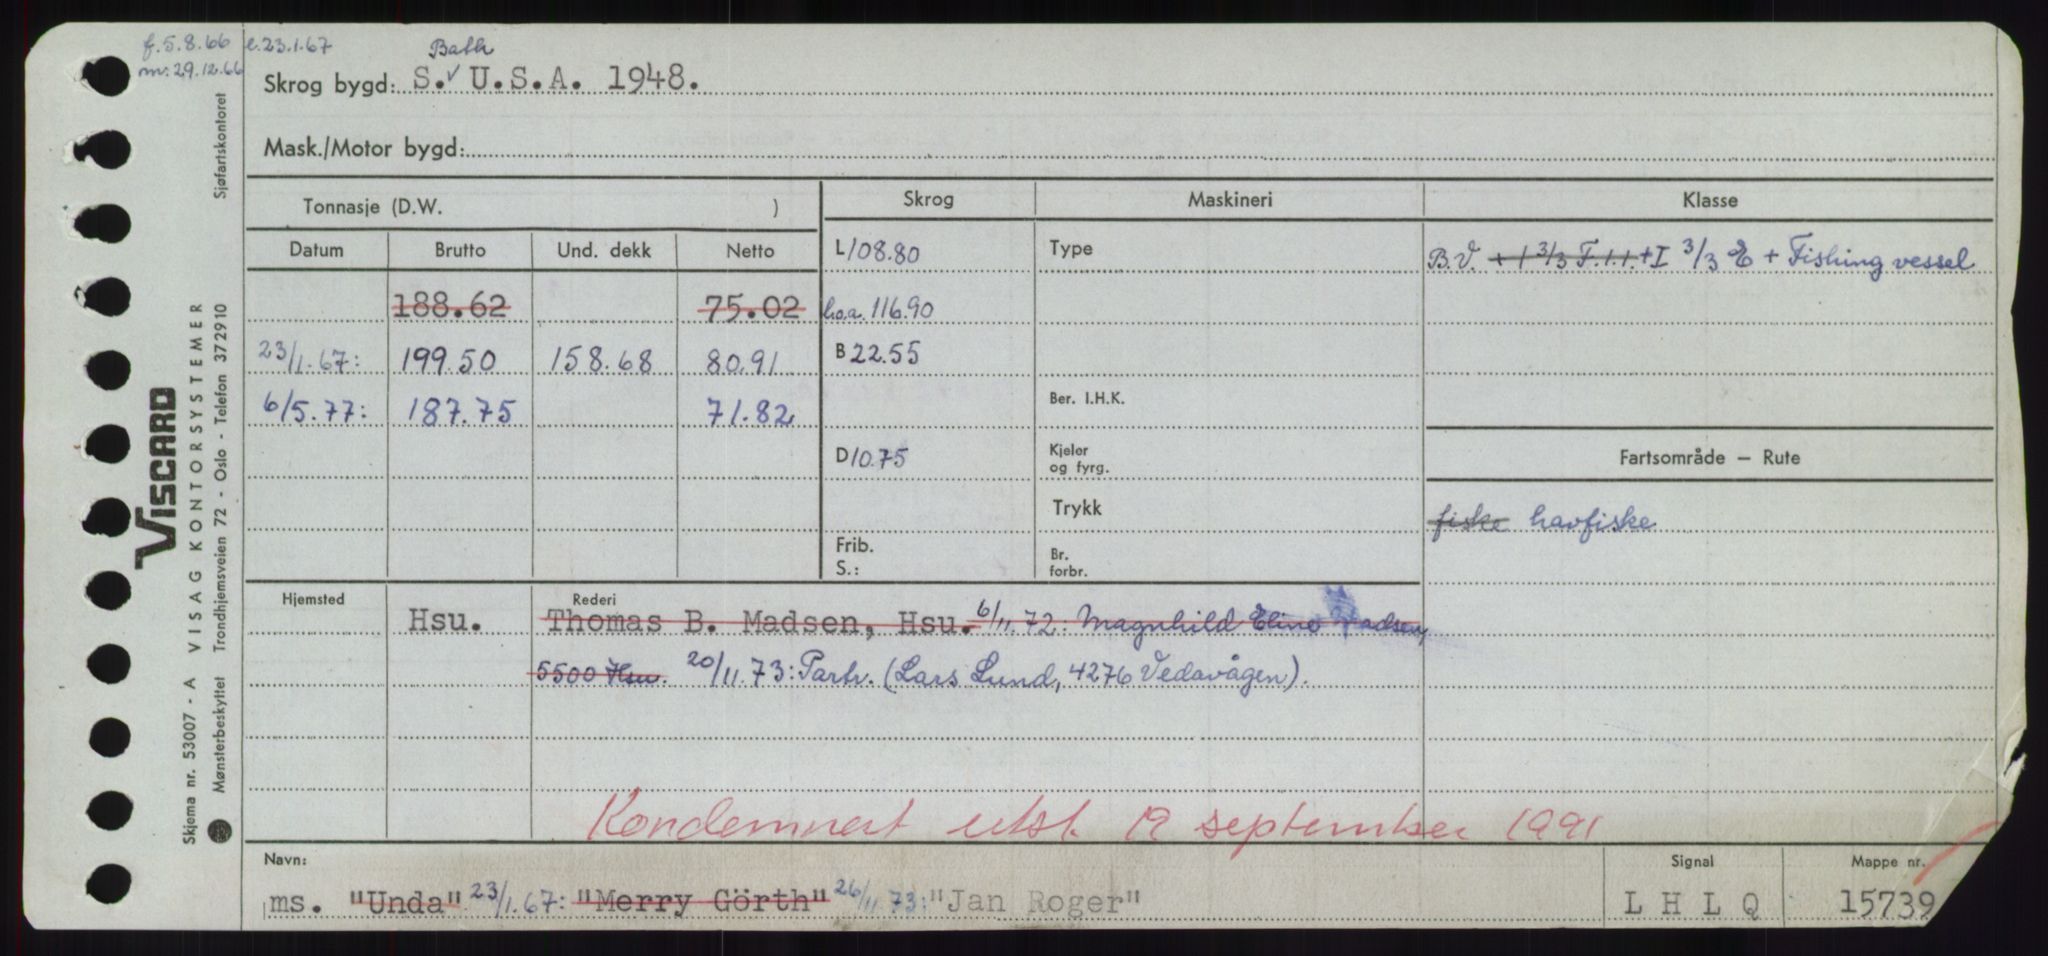 f. 5.8.66 e. 23.1.67
m: 29.12.66
Bath
Skrog bygd: S.✓ U.S.A. 1948.
Mask./Motor bygd:
Tonnasje (D.W. ) Skrog Maskineri Klasse
Datum Brutto Und. dekk Netto
L 108.80 Type B.V. + I 3/3 F.1.1. + I 3/3 E + Fishing vessel
188.62 75.02 l.o.a. 116.90
23/1.67: 199.50 158.68 80.91 B 22.55
6/5.77: 187.75 71.82 Ber. I.H.K.
D 10.75 Kjeler og fyrg. Fartsområde — Rute
Trykk fiske havfiske
Frib.
S.: Br. forbr.
Hjemsted Rederi
Hsu. Thomas B. Madsen, Hsu. 6/11.72: Magnhild Eline Madsen,
5500 Hsu. 20/11.73: Partr. (Lars Lund, 4276 Vedavågen).
Kondemnert utst. 19 september 1991
Navn: Signal Mappe nr.
ms. "Unda" 23/1.67: "Merry Görth" 26/11.73: "Jan Roger" L H L Q 15739
VISCARD
Skjema nr. 53007 - A VISAG KONTORSYSTEMER
Mønsterbeskyttet Trondhjemsveien 72 - Oslo - Telefon 372910 Sjøfartskontoret